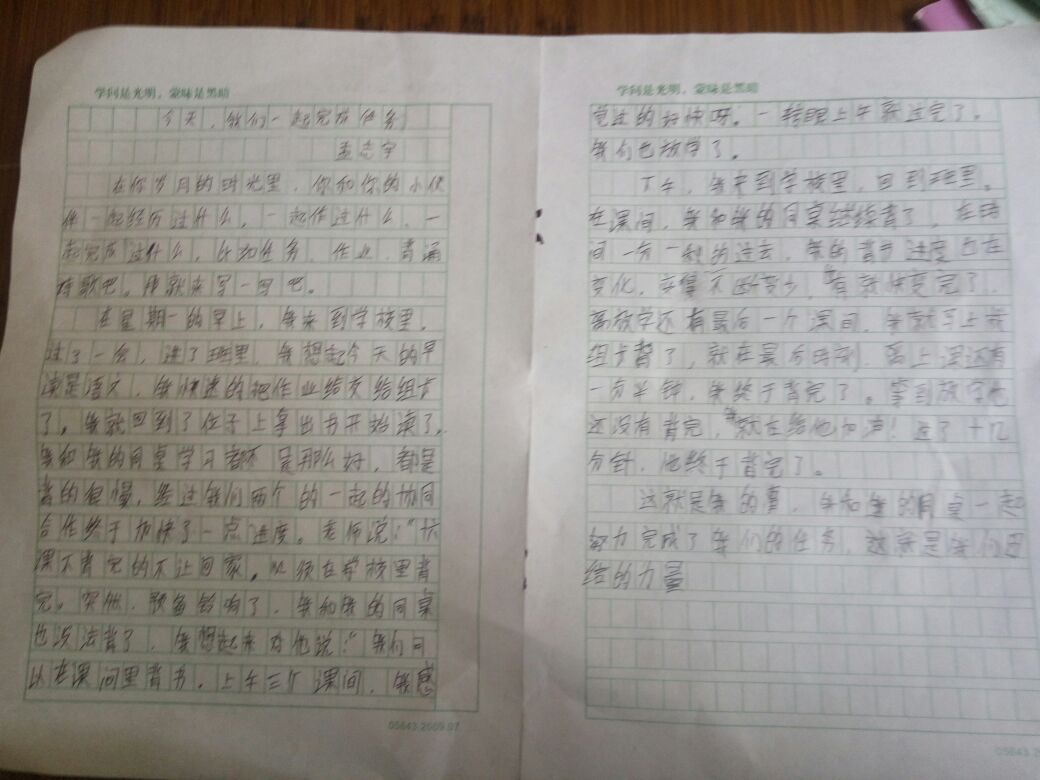 学问是光明，蒙昧是黑暗
今天，我们一起完成任务
孟志宇
在你岁月的时光里，你和你的小伙
伴一起经历过什么，一起作过什么，一
起完成过什么，比如任务，作业，背诵
诗歌吧。我就来写一写吧。
在星期一的早上，我来到学校里，
过了一会，进了班里，我想起今天的早
读是语文，我快速的把作业给交给组长
了。我就回到了位子上拿出书开始读了，
我和我的同桌学习都不是那么好，都是
背的很慢，经过我们两个的一起的协同
合作终于加快了一点进度。老师说：“大
课下背完的不让回家，必须在学校里背
完。突然，预备铃响了，我和我的同桌
也没法背了，我想起来对他说：“我们可
以在课间里背书。上午三个课间，我感
05643.2009.07
学问是光明，蒙昧是黑暗
觉过的好快呀。一转眼上午就过完了。
我们也放学了。
下午，我来到学校里，回到班里。
在课间，我和我的同桌继续背了，在时
间一分一秒的过去，我的背书进度也在
变化，文章不断变少，我有就快变完了，
离放学还有最后一个课间，我就马上找
组长背了，就在最后时刻，离上课还有
一分半钟，我终于背完了。拿到放学他
还没有背完，我就在给他加声！过了十几
分针，他终于背完了。
这就是我的事，我和我的同桌一起
努力完成了我们的任务，这就是我们团
结的力量